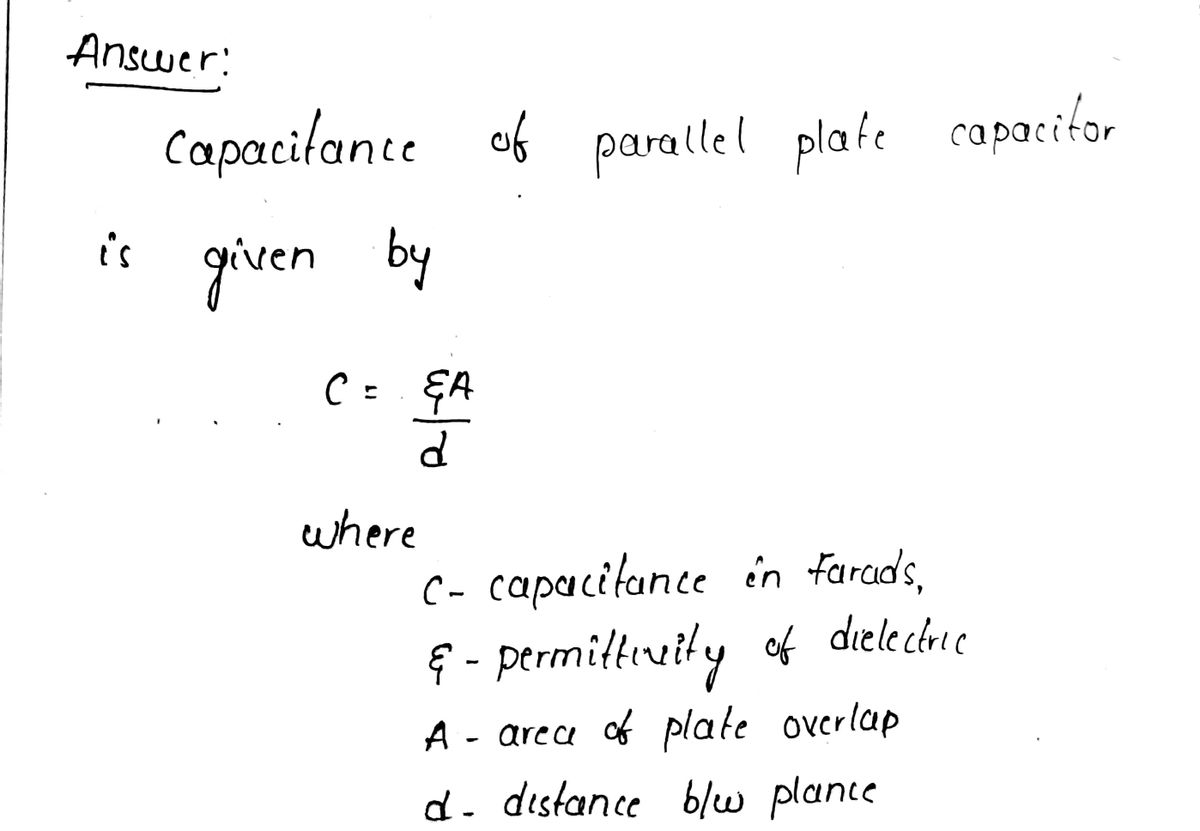 Answer:
Capacitance of parallel plate capacitor
is given by
C = εA
d
where
C - capacitance in Farads,
ε - permittivity of dielectric
A - area of plate overlap
d - distance b/w plance